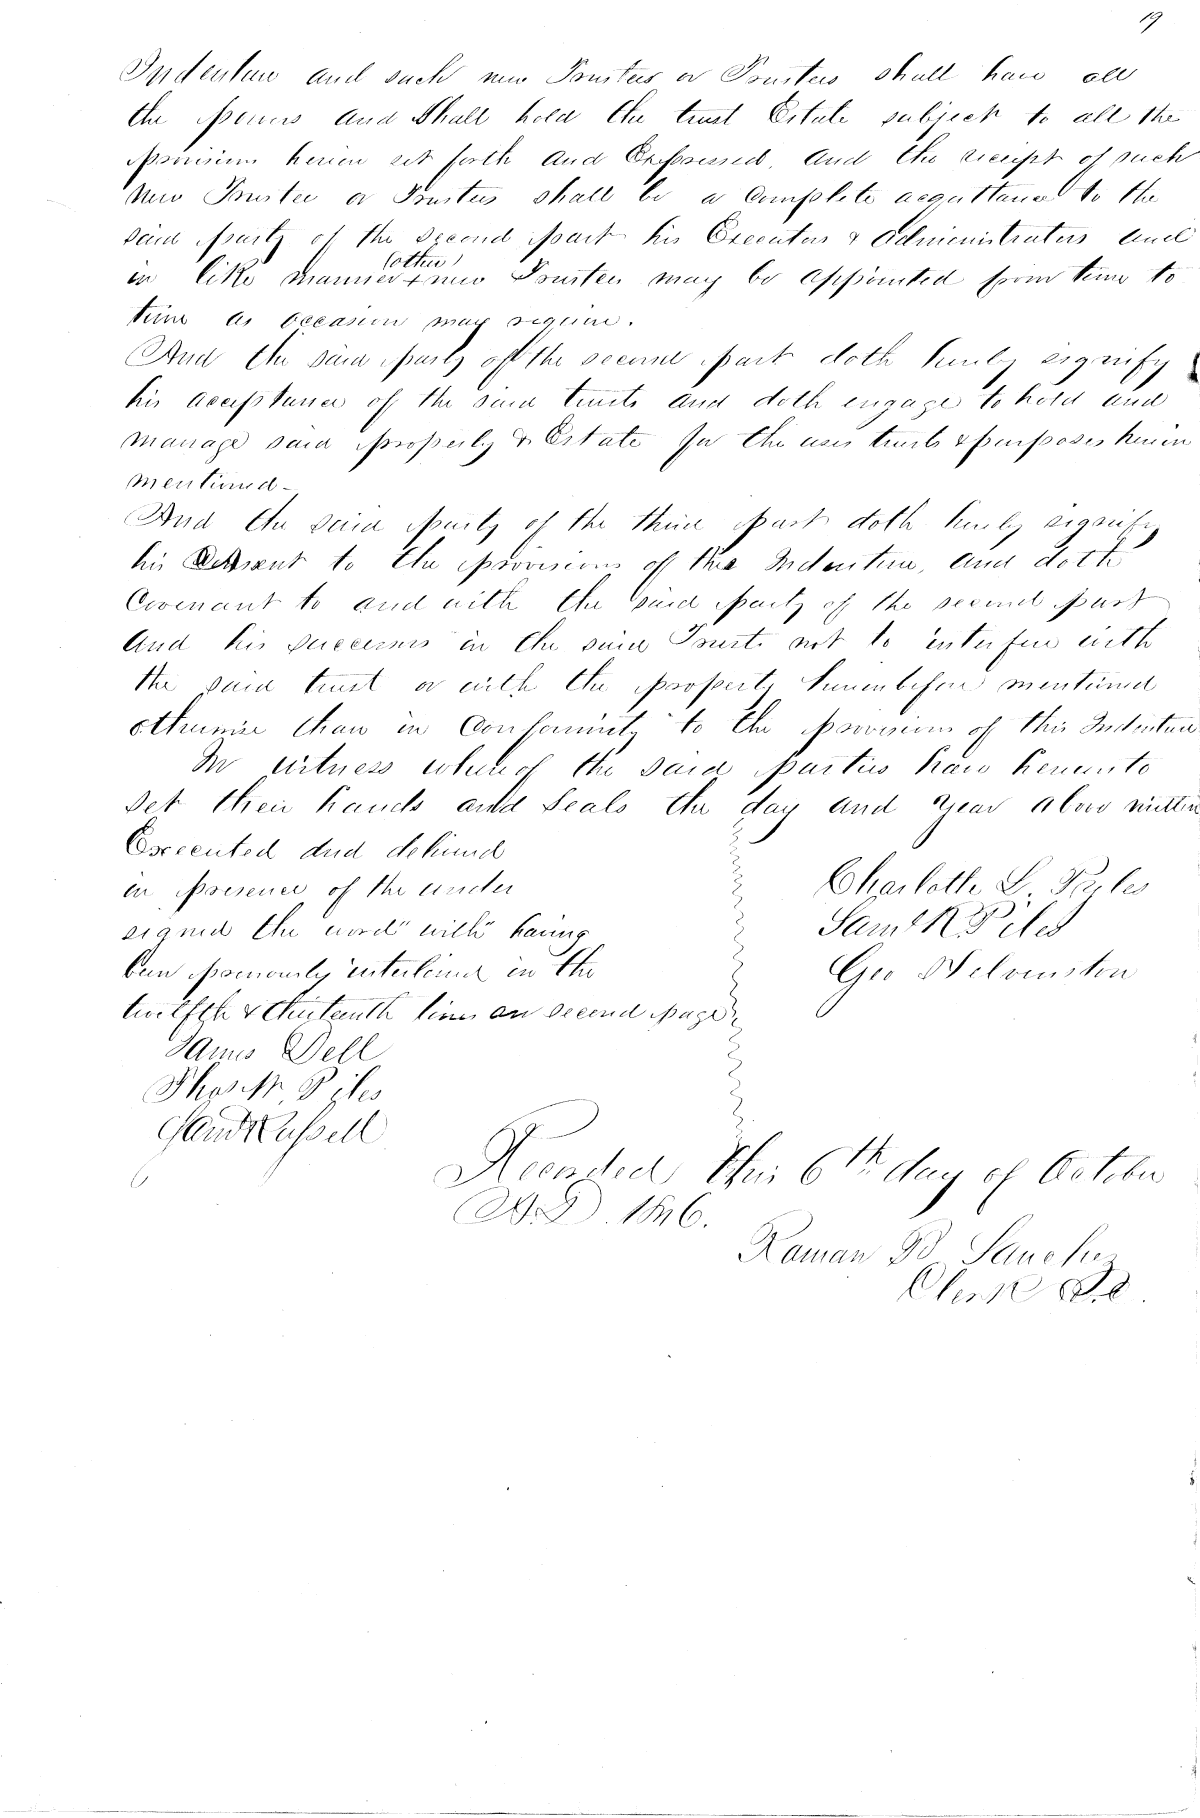 19
Indenture and such new Trustees or Trustees shall have all
the powers and shall hold the trust Estate subject to all the
provisions herein set forth and Expressed, and the receipt of such
new Trustee or Trustees shall be a complete acquittance to the
said party of the second part his Executors & Administrators and
(other)
in like manner + new Trustees may be appointed from time to
time as occasion may require.
And the said party of the second part doth hereby signify
his acceptance of the said trusts and doth engage to hold and
manage said property & Estate for the uses trusts & purposes herein
mentioned -
And the said party of the third part doth hereby signify
his Assent to the provisions of this Indenture, and doth
Covenant to and with the said party of the second part
and his successors in the said Trusts not to interfere with
the said trust or with the property hereinbefore mentioned
otherwise than in Conformity to the provisions of this Indenture
In witness whereof the said parties have hereunto
set their hands and seals the day and year above written
Executed and delivered
in presence of the under
signed the word "with" having
been previously interlined in the
twelfth & thirteenth lines on second page
Charlotte L. Piles
Saml R. Piles
Geo Helvenston
James Dell
Thos W. Piles
Saml Russell
Recorded this 6th day of October
A.D. 1846.
Raman B Sanchez
Clerk